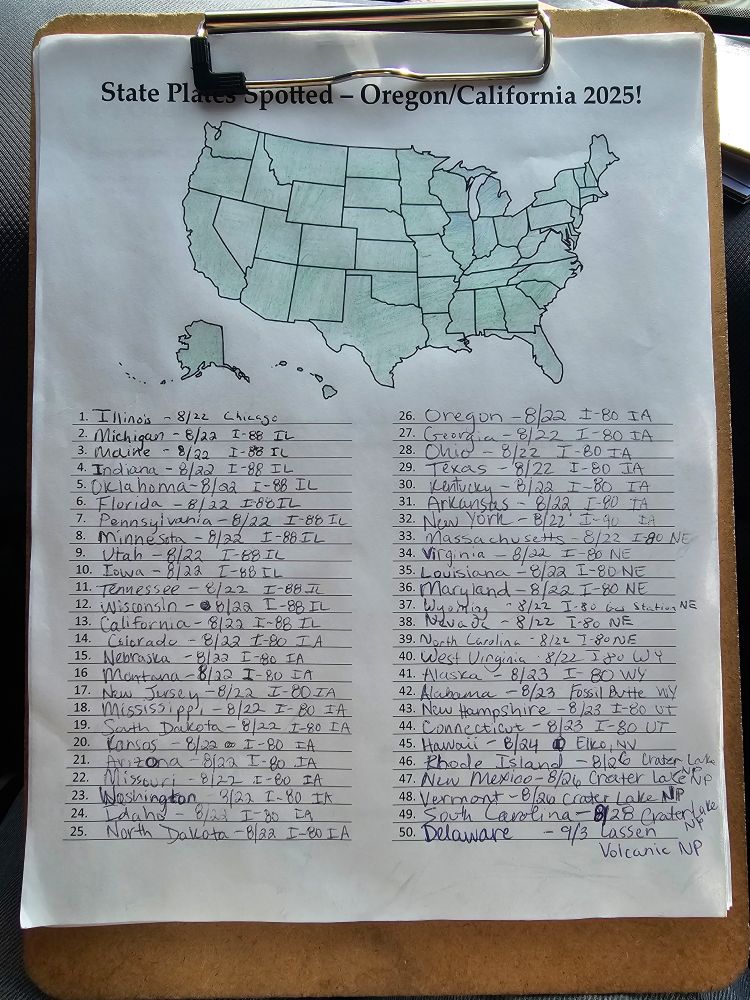 State Plates Spotted – Oregon/California 2025!
1. Illinois - 8/22 Chicago
2. Michigan - 8/22 I-88 IL
3. Maine - 8/22 I-88 IL
4. Indiana - 8/22 I-88 IL
5. Oklahoma - 8/22 I-88 IL
6. Florida - 8/22 I-88 IL
7. Pennsylvania - 8/22 I-88 IL
8. Minnesota - 8/22 I-88 IL
9. Utah - 8/22 I-88 IL
10. Iowa - 8/22 I-88 IL
11. Tennessee - 8/22 I-88 IL
12. Wisconsin - 8/22 I-88 IL
13. California - 8/22 I-88 IL
14. Colorado - 8/22 I-80 IA
15. Nebraska - 8/22 I-80 IA
16 Montana - 8/22 I-80 IA
17. New Jersey - 8/22 I-80 IA
18. Mississippi - 8/22 I-80 IA
19. South Dakota - 8/22 I-80 IA
20. Kansas - 8/22 I-80 IA
21. Arizona - 8/22 I-80 IA
22. Missouri - 8/22 I-80 IA
23. Washington - 8/22 I-80 IA
24. Idaho - 8/22 I-80 IA
25. North Dakota - 8/22 I-80 IA
26. Oregon - 8/22 I-80 IA
27. Georgia - 8/22 I-80 IA
28. Ohio - 8/22 I-80 IA
29. Texas - 8/22 I-80 IA
30. Kentucky - 8/22 I-80 IA
31. Arkansas - 8/22 I-80 IA
32. New York - 8/22 I-90 IA
33. Massachusetts - 8/22 I-80 NE
34. Virginia - 8/22 I-80 NE
35. Louisiana - 8/22 I-80 NE
36. Maryland - 8/22 I-80 NE
37. Wyoming - 8/22 I-80 Gas Station NE
38. Nevada - 8/22 I-80 NE
39. North Carolina - 8/22 I-80 NE
40. West Virginia - 8/22 I-80 WY
41. Alaska - 8/23 I-80 WY
42. Alabama - 8/23 Fossil Butte WY
43. New Hampshire - 8/23 I-80 UT
44. Connecticut - 8/23 I-80 UT
45. Hawaii - 8/24 Elko, NV
46. Rhode Island - 8/26 Crater Lake NP
47. New Mexico - 8/26 Crater Lake NP
48. Vermont - 8/26 Crater Lake NP
49. South Carolina - 8/28 Crater Lake NP
50. Delaware - 9/3 Lassen
Volcanic NP